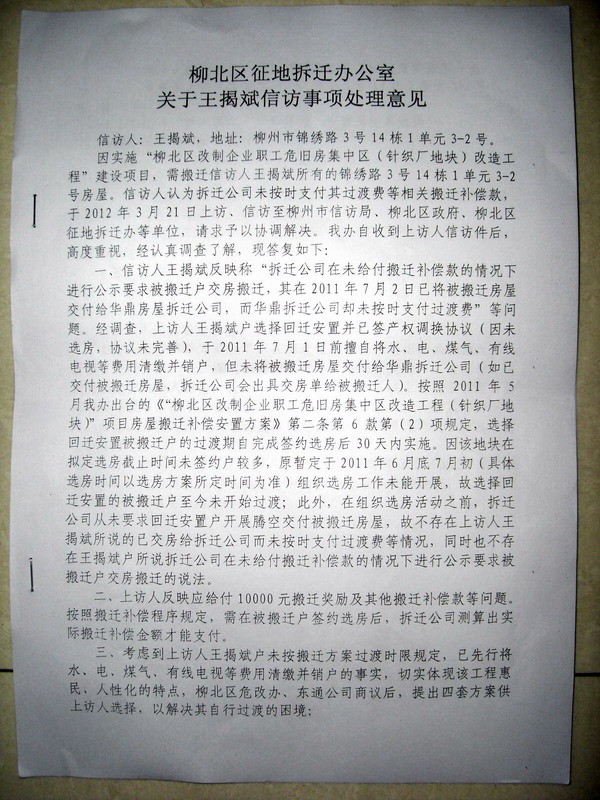 柳北区征地拆迁办公室
关于王揭斌信访事项处理意见
信访人：王揭斌，地址：柳州市锦绣路3号14栋1单元3-2号。
因实施“柳北区改制企业职工危旧房集中区（针织厂地块）改造工
程”建设项目，需搬迁信访人王揭斌所有的锦绣路3号14栋1单元3-2
号房屋。信访人认为拆迁公司未按时支付其过渡费等相关搬迁补偿款，
于2012年3月21日上访、信访至柳州市信访局、柳北区政府、柳北区
征地拆迁办等单位，请求予以协调解决。我办自收到上访人信访件后，
高度重视，经认真调查了解，现答复如下：
一、信访人王揭斌反映称“拆迁公司在未给付搬迁补偿款的情况下
进行公示要求被搬迁户交房搬迁，其在2011年7月2日已将被搬迁房屋
交付给华鼎房屋拆迁公司，而华鼎拆迁公司却未按时支付过渡费”等问
题。经调查，上访人王揭斌户选择回迁安置并已签产权调换协议（因未
选房，协议未完善），于2011年7月1日前擅自将水、电、煤气、有线
电视等费用清缴并销户，但未将被搬迁房屋交付给华鼎拆迁公司（如已
交付被搬迁房屋，拆迁公司会出具交房单给被搬迁人）。按照2011年5
月我办出台的《“柳北区改制企业职工危旧房集中区改造工程（针织厂地
块）”项目房屋搬迁补偿安置方案》第二条第6款第（2）项规定，选择
回迁安置被搬迁户的过渡期自完成签约选房后30天内实施。因该地块在
拟定选房截止时间未签约户较多，原暂定于2011年6月底7月初（具体
选房时间以选房方案所定时间为准）组织选房工作未能开展，故选择回
迁安置的被搬迁户至今未开始过渡；此外，在组织选房活动之前，拆迁
公司从未要求回迁安置户开展腾空交付被搬迁房屋，故不存在上访人王
揭斌所说的已交房给拆迁公司而未按时支付过渡费等情况，同时也不存
在王揭斌户所说拆迁公司在未给付搬迁补偿款的情况下进行公示要求被
搬迁户交房搬迁的说法。
二、上访人反映应给付10000元搬迁奖励及其他搬迁补偿款等问题。
按照搬迁补偿程序规定，需在被搬迁户签约选房后，拆迁公司测算出实
际搬迁补偿金额才能支付。
三、考虑到上访人王揭斌户未按搬迁方案过渡时限规定，已先行将
水、电、煤气、有线电视等费用清缴并销户的事实，切实体现该工程惠
民、人性化的特点，柳北区危改办、东通公司商议后，提出四套方案供
上访人选择，以解决其自行过渡的困境：